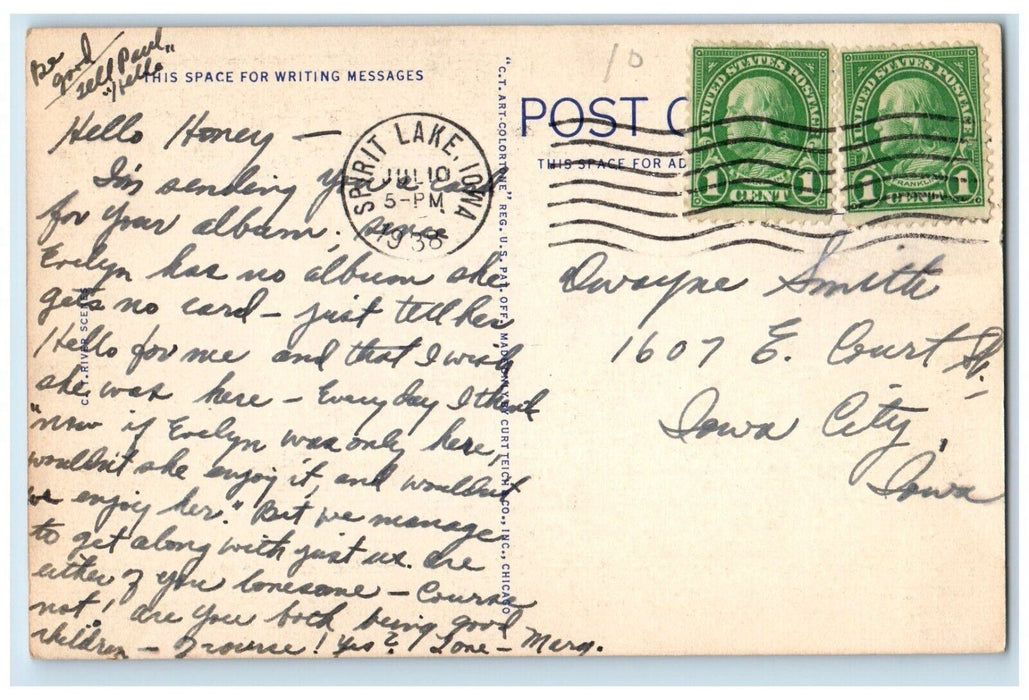 Be
good
tell Paul
"Hello"
THIS SPACE FOR WRITING MESSAGES
Hello Honey —
I'm sending you a card
for your album, since
Evelyn has no album she
gets no card — just tell her
Hello for me and that I wish
she was here — Every day I think
"now if Evelyn was only here,
wouldn't she enjoy it, and wouldn't
we enjoy her." But we manage
to get along with just us. Are
either of you lonesome — Course
not! Are you both being good
children — of course! Yes? Love — Marg.
C.T. RIVER SCENES
"C.T. ART-COLORTONE" REG. U.S. PAT. OFF. MADE ONLY BY CURT TEICH & CO., INC., CHICAGO
10
POST C
THIS SPACE FOR AD
SPIRIT LAKE, IOWA
JUL 10
5-PM
1938
UNITED STATES POSTAGE
1 CENT 1
UNITED STATES POSTAGE
FRANKLIN
1 CENT 1
Dwayne Smith
1607 E. Court St.
Iowa City,
Iowa